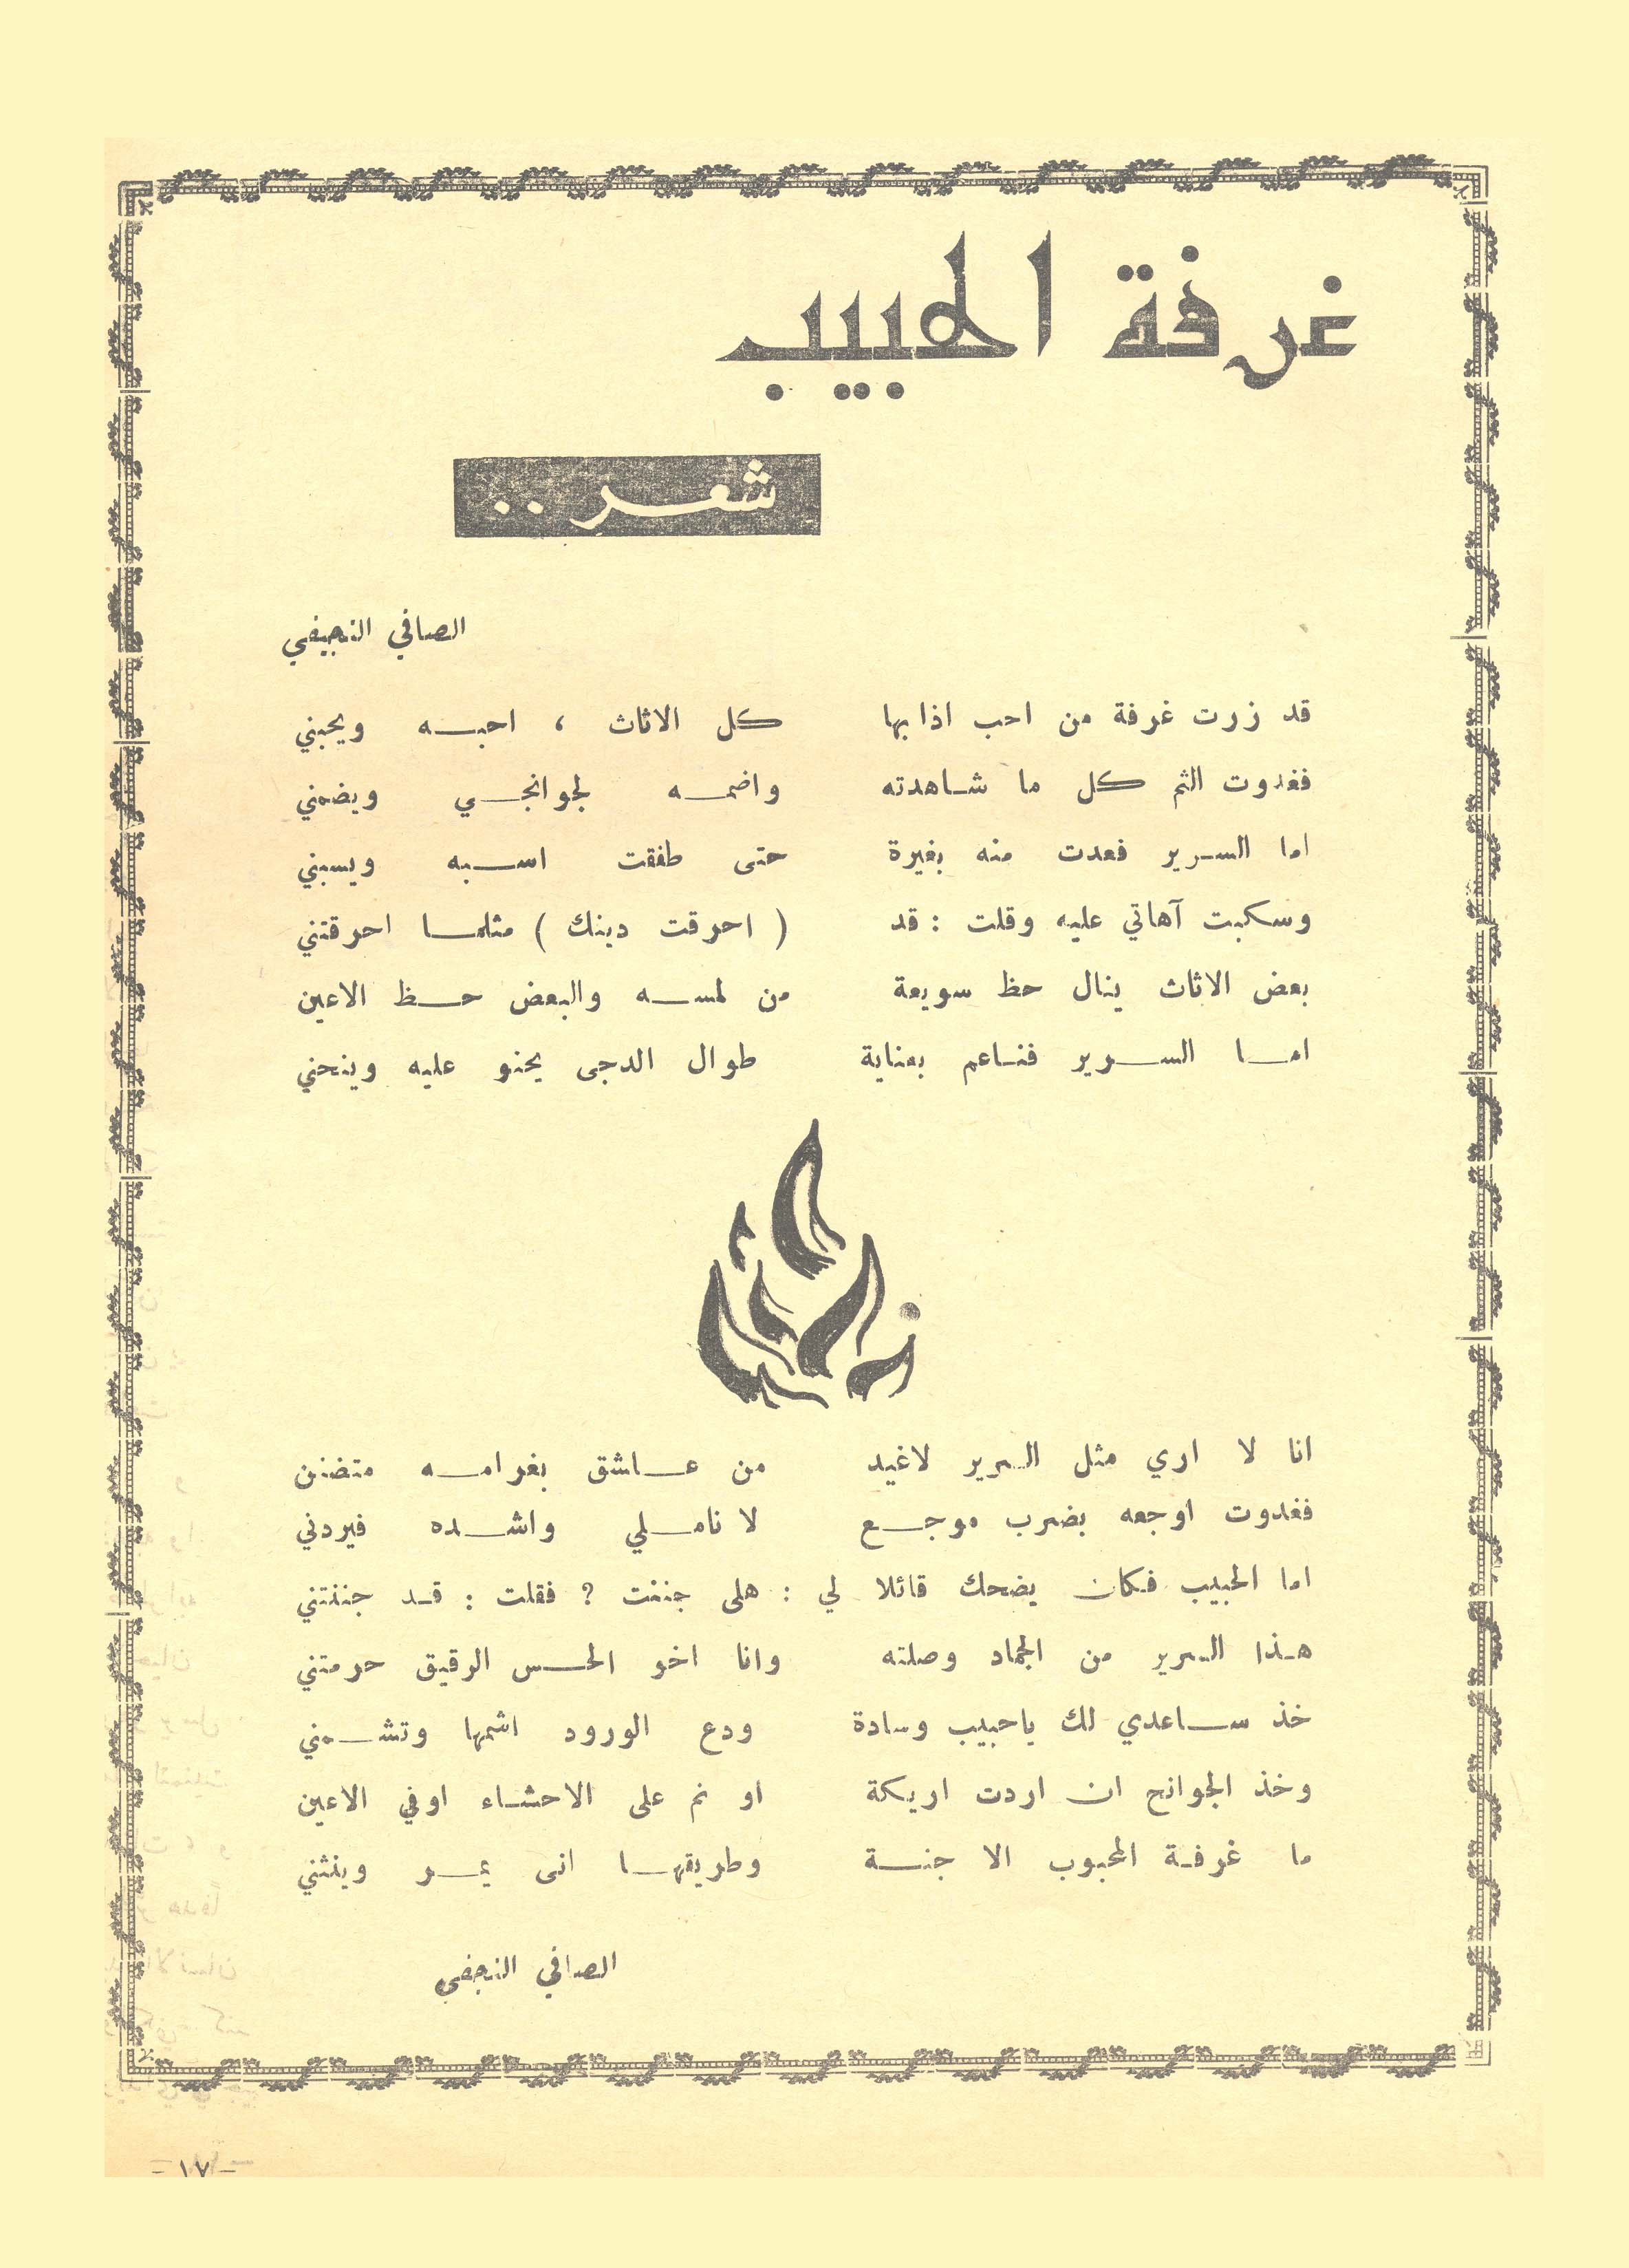 غرفة الحبيب
شعر ..
الصافي النجيفي
قد زرت غرفة من احب اذا بها كل الاثاث ، احبه ويحبني
فغدوت الثم كل ما شاهدته واضمه لجوانحي ويضمني
اما السرير فعدت منه بغيرة حتى طفقت اسبه ويسبني
وسكبت آهاتي عليه وقلت : قد ( احرقت دينك ) مثلما احرقتني
بعض الاثاث ينال حظ سويعة من لمسه والبعض حظ الاعين
اما السرير فناعم بعناية طوال الدجى يحنو عليه وينحني
انا لا اري مثل السرير لاغيد من عاشق بغرامه متضنن
فغدوت اوجعه بضرب موجع لا ناملي واشده فيردني
اما الحبيب فكان يضحك قائلا لي : هلى جننت ? فقلت : قد جننتني
هذا السرير من الجماد وصلته وانا اخو الحس الرقيق حرمتني
خذ ساعدي لك ياحبيب وسادة ودع الورود اشمها وتشمني
وخذ الجوانح ان اردت اريكة او نم على الاحشاء اوفي الاعين
ما غرفة المحبوب الا جنة وطريقها انى يمر وينثني
الصافي النجفي
- ١٧ -